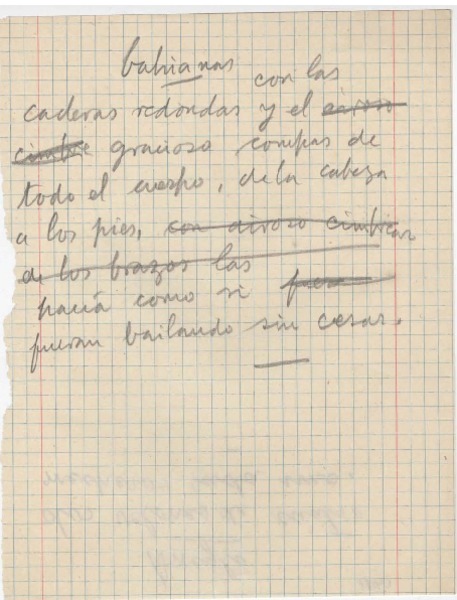 bahianas con las
caderas redondas y el airoso
cimbre gracioso compas de
todo el cuerpo, de la cabeza
a los pies, con airoso cimbrear
de los brazos las
pacía como si fuera
fueran bailando sin cesar.